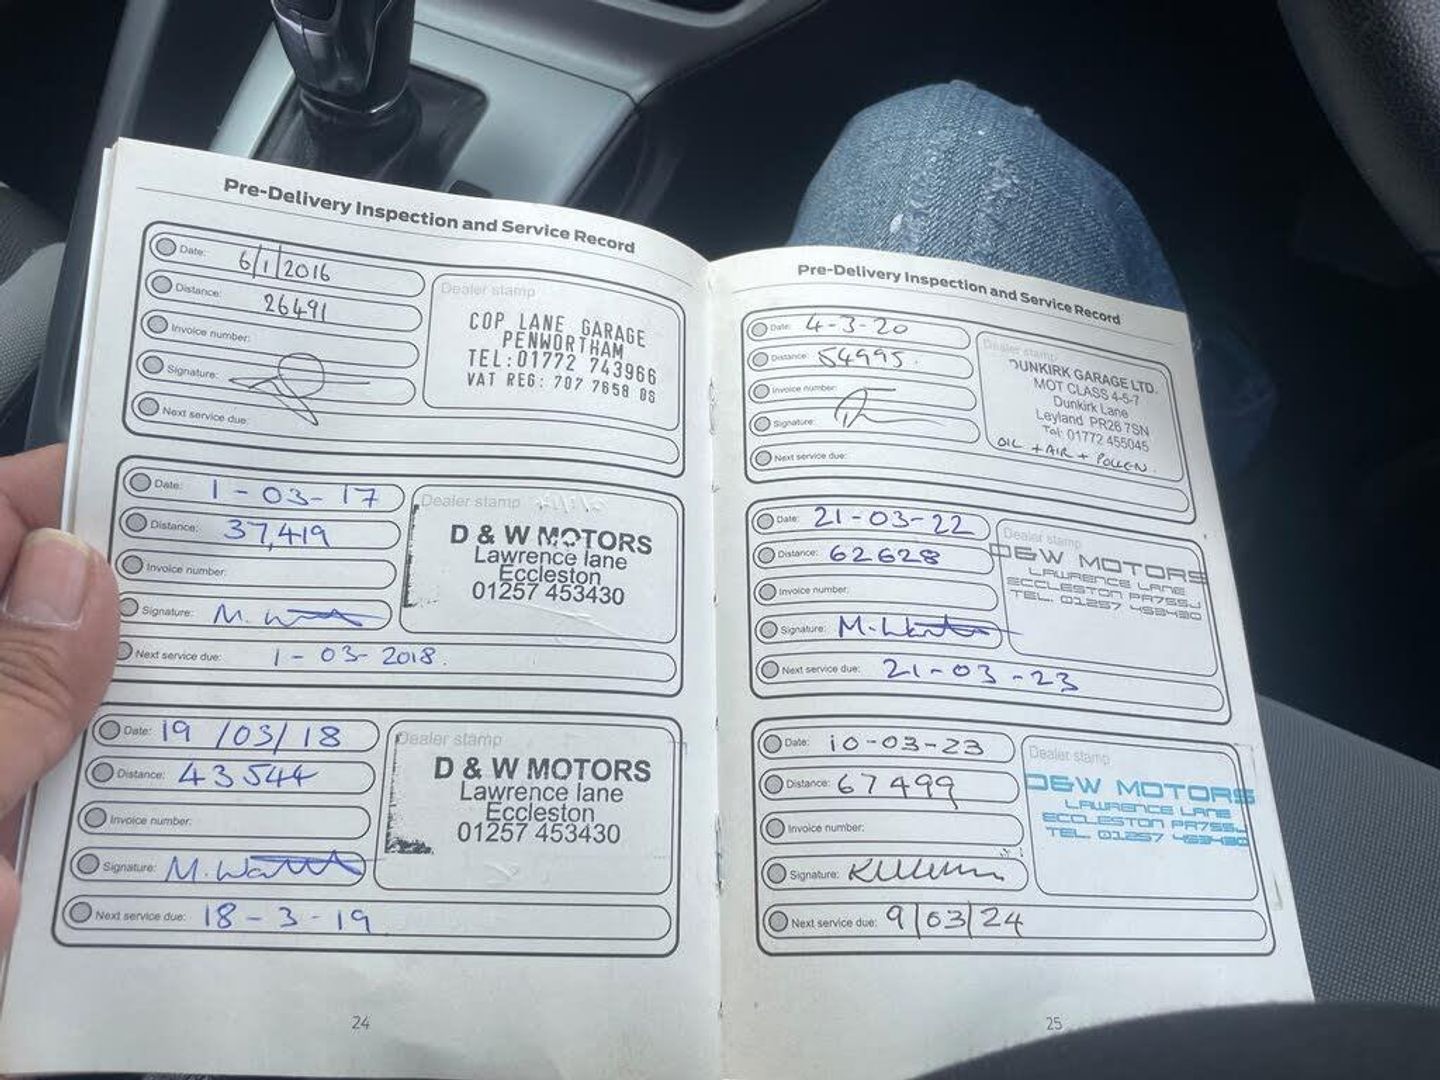 Pre-Delivery Inspection and Service Record
Date: 6/1/2016
Distance: 26491
Invoice number:
Signature:
Next service due:
Dealer stamp
COP LANE GARAGE
PENWORTHAM
TEL:01772 743966
VAT REG: 707 7658 08
Date: 1-03-17
Distance: 37,419
Invoice number:
Signature: M.
Next service due: 1-03-2018.
Dealer stamp
D & W MOTORS
Lawrence lane
Eccleston
01257 453430
Date: 19/03/18
Distance: 43544
Invoice number:
Signature: M.
Next service due: 18-3-19
Dealer stamp
D & W MOTORS
Lawrence lane
Eccleston
01257 453430
24
Pre-Delivery Inspection and Service Record
Date: 4-3-20
Distance: 54995.
Invoice number:
Signature:
Next service due:
Dealer stamp
DUNKIRK GARAGE LTD.
MOT CLASS 4-5-7
Dunkirk Lane
Leyland PR26 7SN
Tel: 01772 455045
OIL + AIR + POLLEN.
Date: 21-03-22
Distance: 62628
Invoice number:
Signature: M.
Next service due: 21-03-23
Dealer stamp
D&W MOTORS
LAWRENCE LANE
ECCLESTON PR75SJ
TEL. 01257 453430
Date: 10-03-23
Distance: 67499
Invoice number:
Signature:
Next service due: 9/03/24
Dealer stamp
D&W MOTORS
LAWRENCE LANE
ECCLESTON PR75SJ
TEL. 01257 453430
25